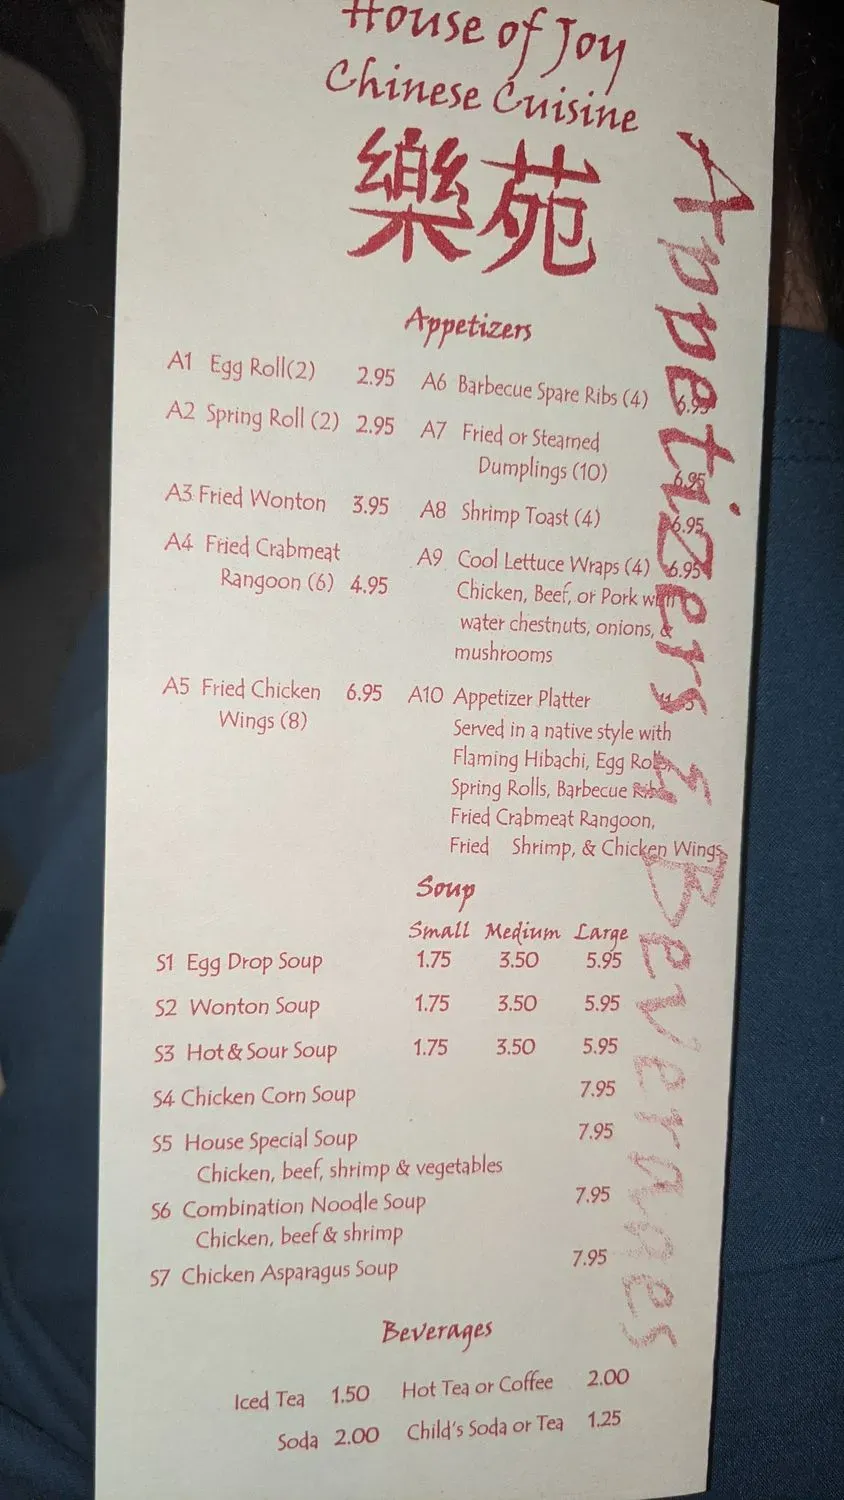 House of Joy
Chinese Cuisine
樂苑
Appetizers & Beverages
Appetizers
A1 Egg Roll(2) 2.95
A2 Spring Roll (2) 2.95
A3 Fried Wonton 3.95
A4 Fried Crabmeat
Rangoon (6) 4.95
A5 Fried Chicken 6.95
Wings (8)
A6 Barbecue Spare Ribs (4) 6.95
A7 Fried or Steamed
Dumplings (10) 6.95
A8 Shrimp Toast (4) 6.95
A9 Cool Lettuce Wraps (4) 6.95
Chicken, Beef, or Pork with
water chestnuts, onions, &
mushrooms
A10 Appetizer Platter
Served in a native style with
Flaming Hibachi, Egg Rolls,
Spring Rolls, Barbecue Ribs,
Fried Crabmeat Rangoon,
Fried Shrimp, & Chicken Wings
Soup
Small Medium Large
S1 Egg Drop Soup 1.75 3.50 5.95
S2 Wonton Soup 1.75 3.50 5.95
S3 Hot & Sour Soup 1.75 3.50 5.95
S4 Chicken Corn Soup 7.95
S5 House Special Soup 7.95
Chicken, beef, shrimp & vegetables
S6 Combination Noodle Soup 7.95
Chicken, beef & shrimp
S7 Chicken Asparagus Soup 7.95
Beverages
Iced Tea 1.50 Hot Tea or Coffee 2.00
Soda 2.00 Child's Soda or Tea 1.25